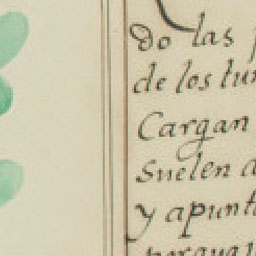 do las
de los tun
Cargan
Suelen a
y apunta
porque